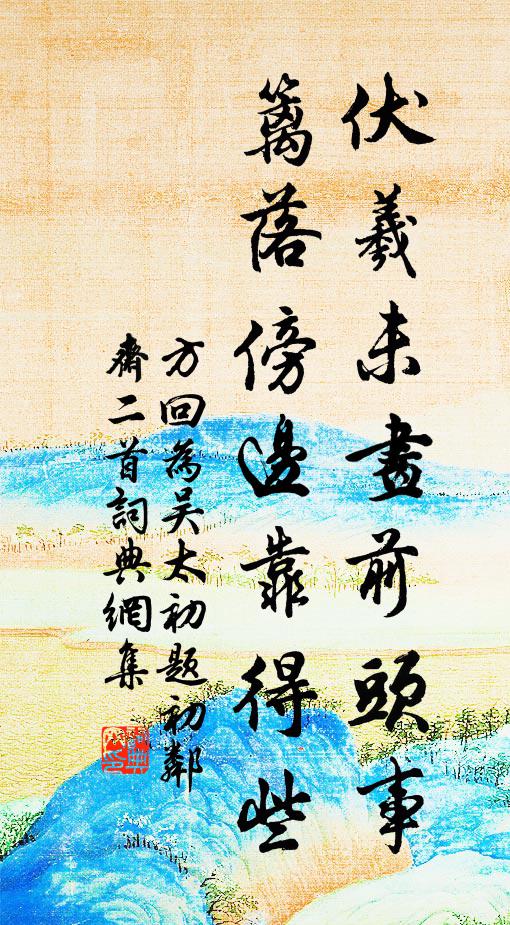 伏羲未畫前頭事
籬落傍邊靠得些
方回為吳太初題初鄰
齋二首詞典網集